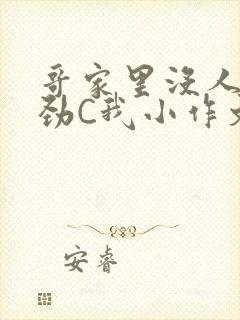 哥家里没人
劲C我小作文
安睿